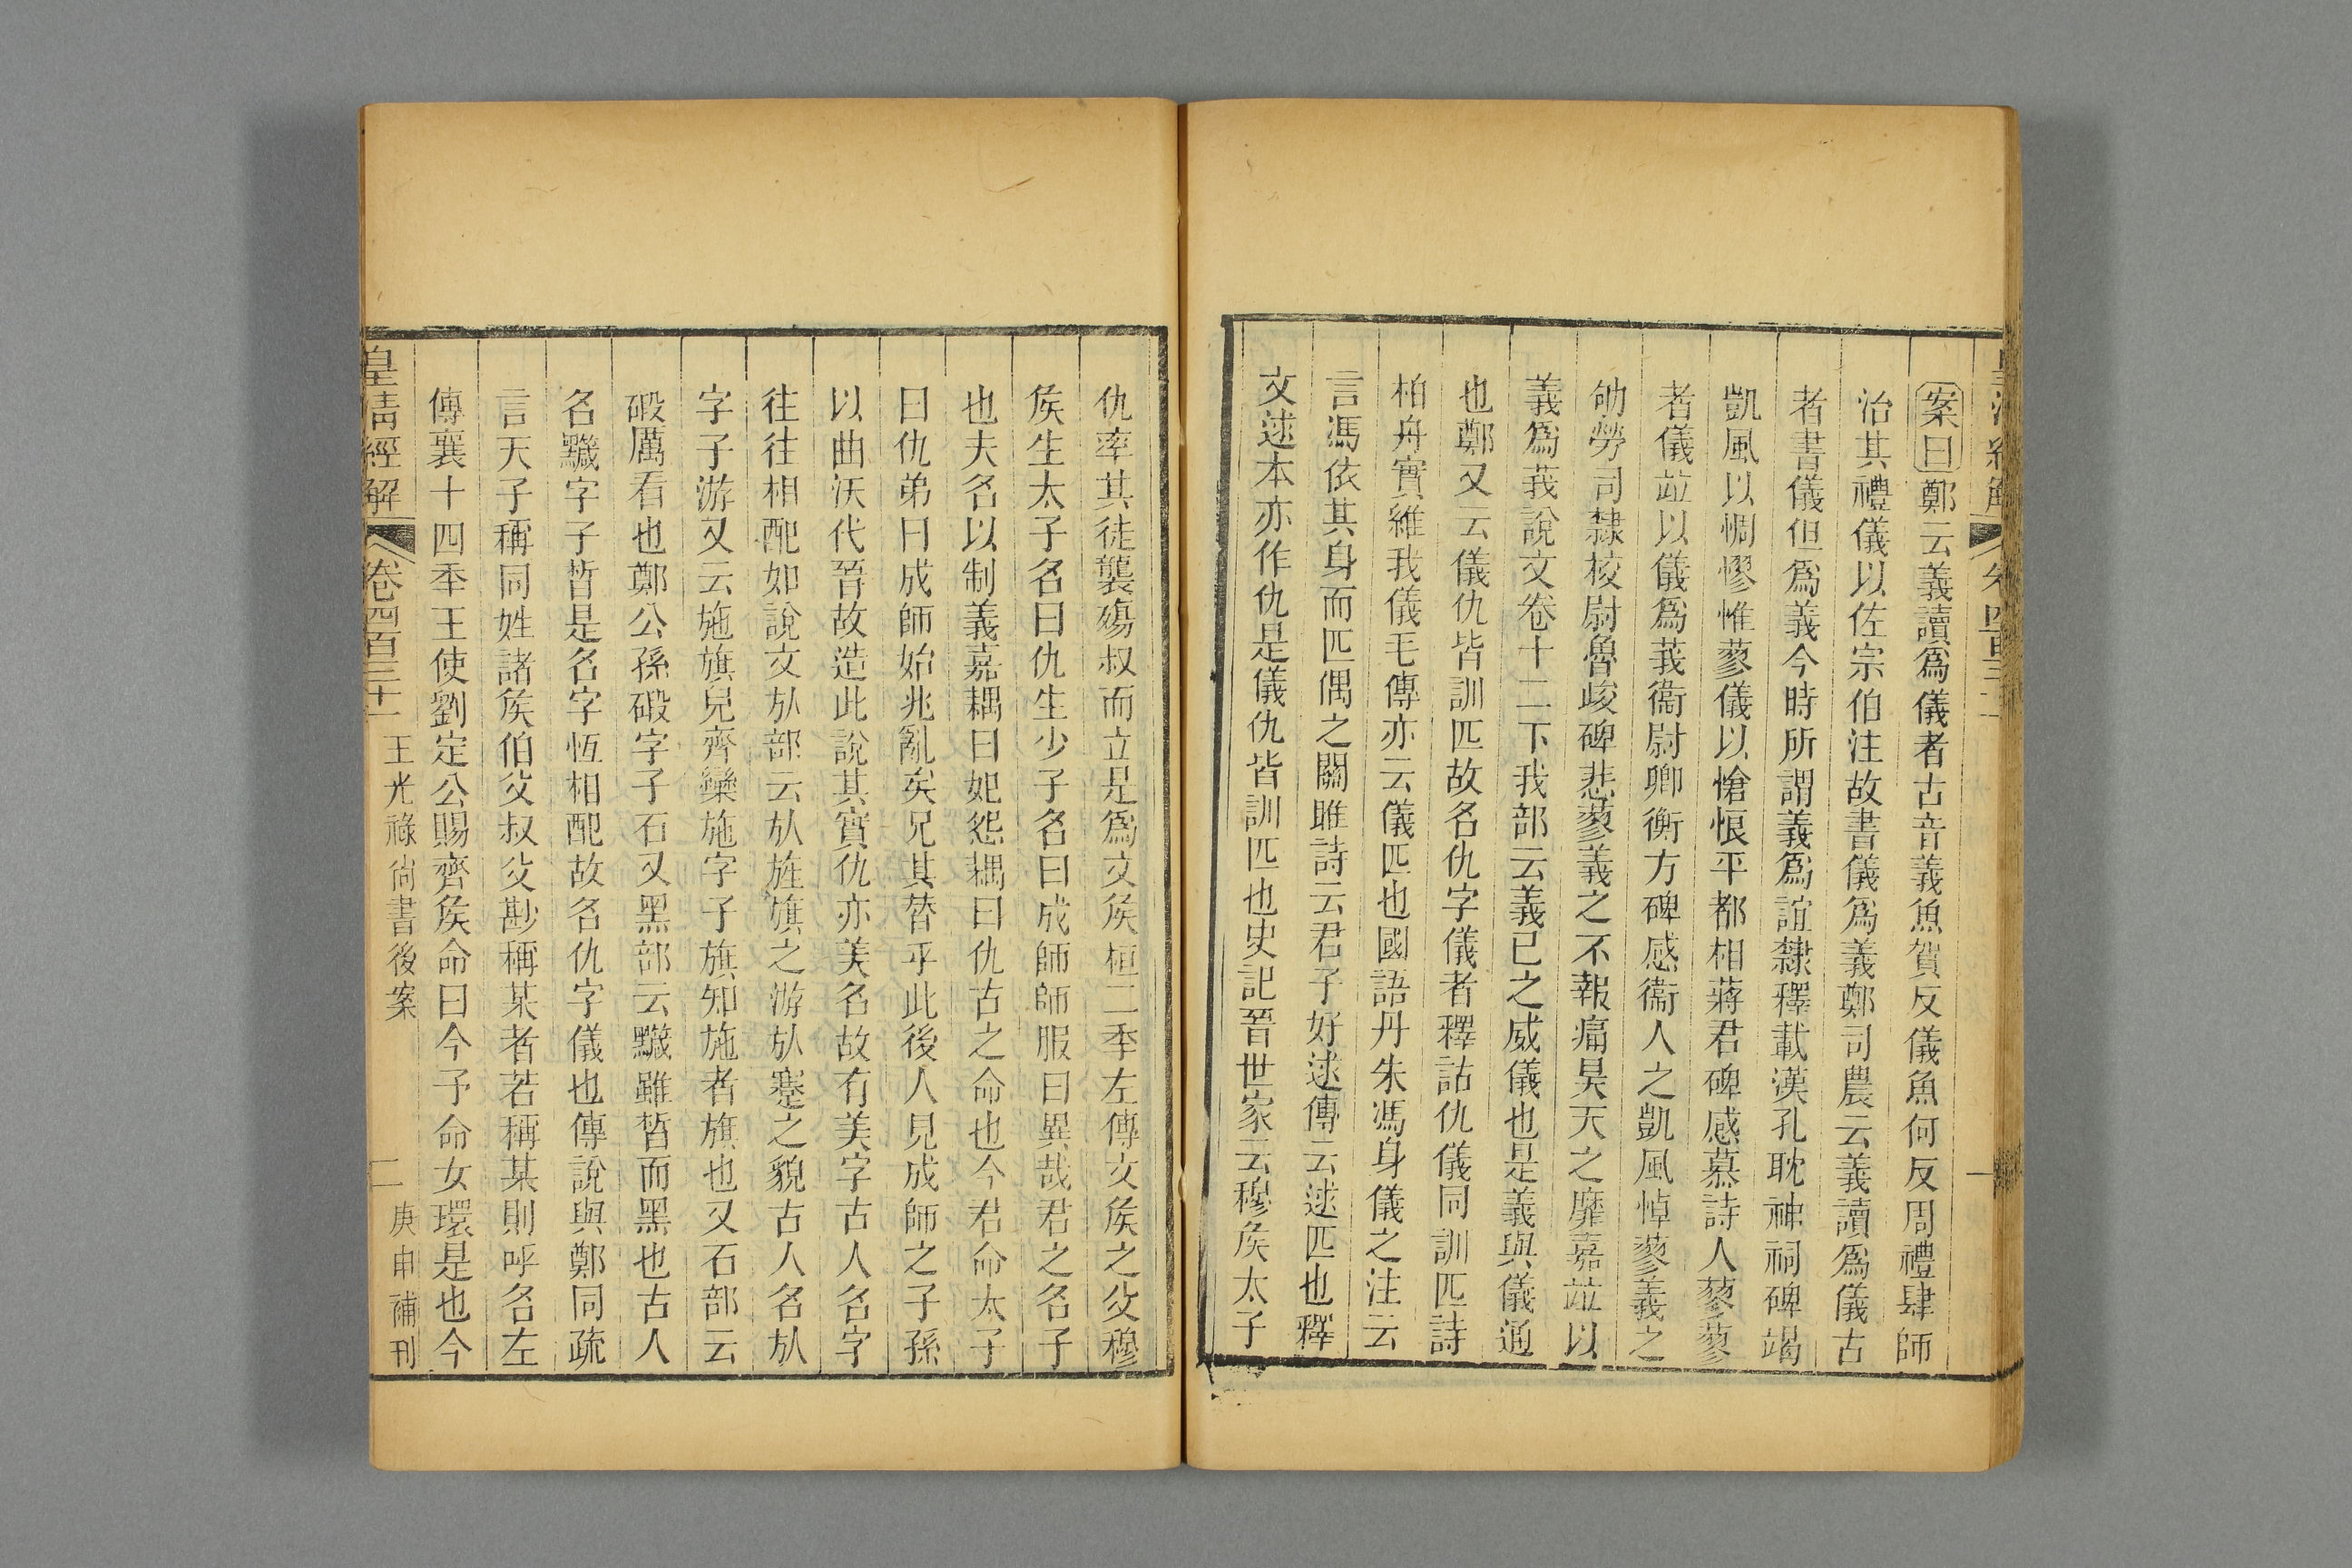 案曰鄭云義讀爲儀者古音義魚賀反儀魚何反周禮肆師
治其禮儀以佐宗伯注故書儀爲義鄭司農云義讀爲儀古
者書儀但爲義今時所謂義爲誼隸釋載漢孔耽神祠碑竭
凱風以惆憀惟蓼儀以愴悢平都相蔣君碑感慕詩人蓼蓼
者儀竝以儀爲莪衞尉卿衡方碑感衞人之凱風悼蓼義之
劬勞司隸校尉魯峻碑悲蓼義之不報痛昊天之靡嘉竝以
義爲莪說文卷十二下我部云義已之威儀也是義與儀通
也鄭又云儀仇皆訓匹故名仇字儀者釋詁仇儀同訓匹詩
柏舟實維我儀毛傳亦云儀匹也國語丹朱馮身儀之注云
言馮依其身而匹偶之關雎詩云君子好逑傳云逑匹也釋
文逑本亦作仇是儀仇皆訓匹也史記晉世家云穆矦太子
仇率其徒襲殤叔而立是爲文矦桓二秊左傳文矦之父穆
矦生太子名曰仇生少子名曰成師師服曰異哉君之名子
也夫名以制義嘉耦曰妃怨耦曰仇古之命也今君命太子
曰仇弟曰成師始兆亂矣兄其替乎此後人見成師之子孫
以曲沃代晉故造此說其實仇亦美名故有美字古人名字
往往相配如說文㫃部云㫃旌旗之游㫃蹇之貌古人名㫃
字子游又云施旗皃齊欒施字子旗知施者旗也又石部云
碫厲石也鄭公孫碫字子石又黑部云黬雖皙而黑也古人
名黬字子皙是名字恆相配故名仇字儀也傳說與鄭同疏
言天子稱同姓諸矦伯父叔父尠稱某者若稱某則呼名左
傳襄十四秊王使劉定公賜齊矦命曰今予命女環是也今
皇清經解 卷四百三十一 王光祿尙書後案 二 庚申補刊